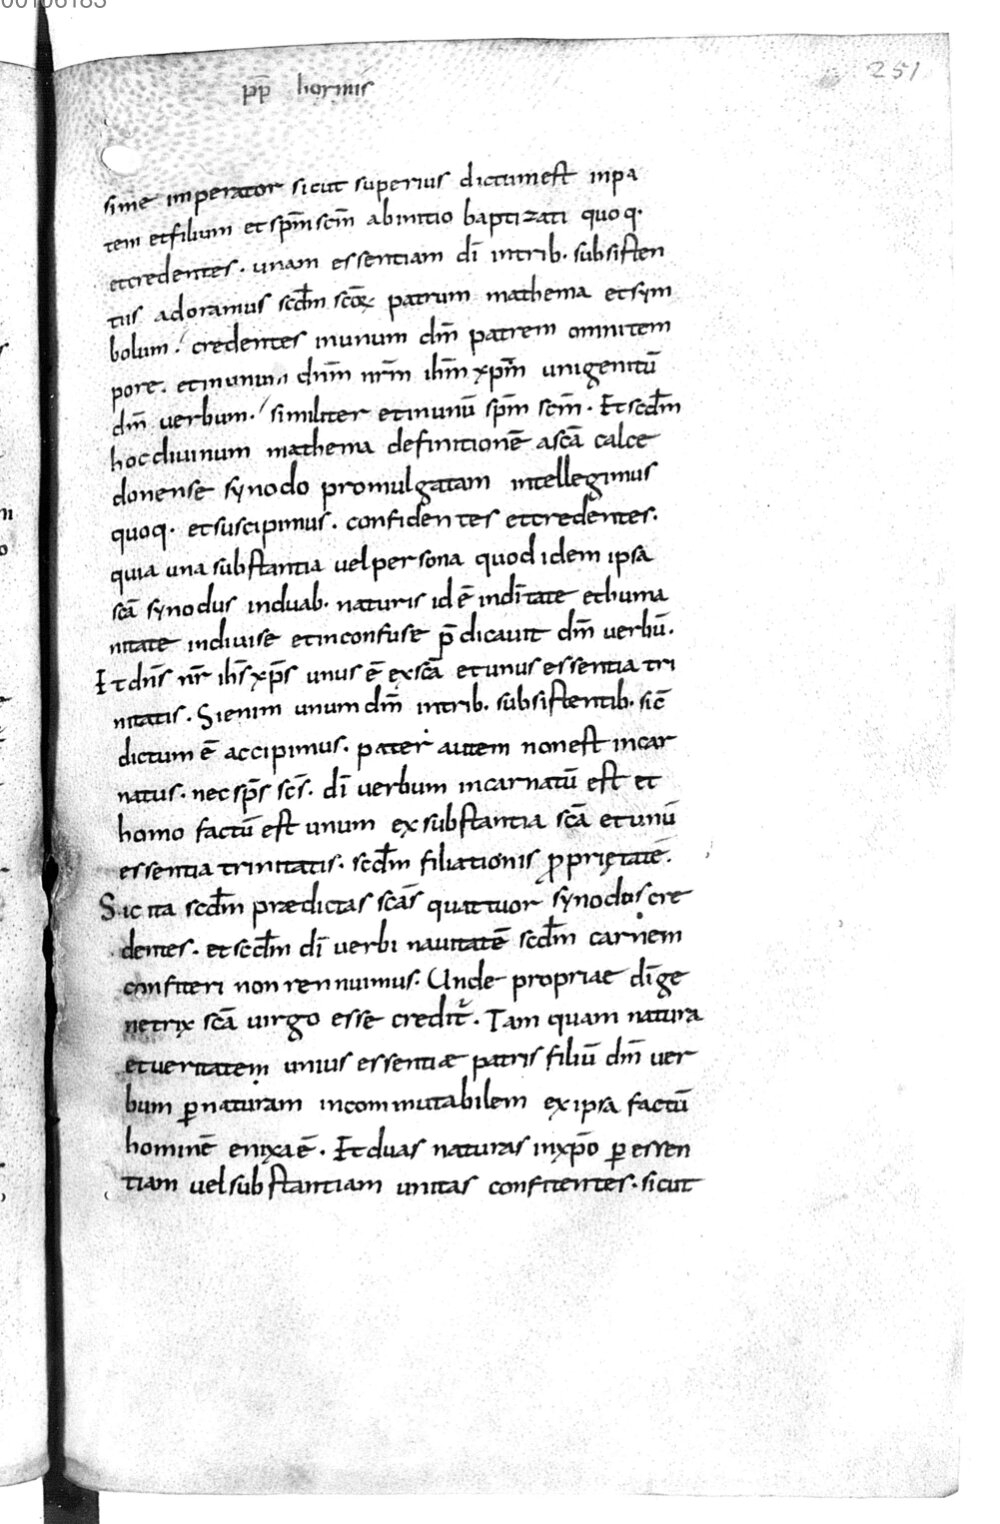 00106183
251
p̄p̄ hormis
sime imperator sicut superius dictumest inpa
tem etfilium et sp̄m sc̄m abinitio baptizati quoq·
etcredentes· unam essentiam dī intrib· subsisten
tiis adoramus scd̄m scōꝝ patrum mathema etsym
bolum· credentes inunum dm̄ patrem omnitem
pore· etinunum dn̄m nr̄m ih̄m xp̄m unigenitū
dm̄ verbum· similiter etinunū sp̄m sc̄m· Et scd̄m
hocdiuinum mathema definitionē ascā calce
donense synodo promulgatam intellegimus
quoq· etsuscipimus· confidentes etcredentes·
quia una substantia uelpersona quod idem ipsa
scā synodus induab· naturis id ē indītate ethuma
nitate indiuise etinconfuse p̄dicauit dm̄ uerbū·
Et dn̄s nr̄ ih̄s xp̄s unus ē exscā etunus essentia tri
nitatis· Si enim unum dm̄ intrib· subsistentib· sic̄
dictum ē accipimus· pater autem nonest incar
natus· nec sp̄s sc̄s· dī uerbum incarnatū est et
homo factū est unum ex substantia scā etunū
essentia trinitatis· scd̄m filiationis ꝓprietatē·
Sic ita scd̄m prædictas scās quattuor synodos cre
dentes· et scd̄m dī uerbi nauitatē scd̄m carnem
confiteri non rennuimus· Unde propriae dīge
netrix scā uirgo esse credit̄· Tam quam natura
etueritatem unius essentiæ patris filiū dm̄ uer
bum ꝑnaturam incommutabilem ex ipsa factū
hominē enixa ē· Et duas naturas inxp̄o ꝑ essen
tiam uelsubstantiam unitas confitentes· sicut